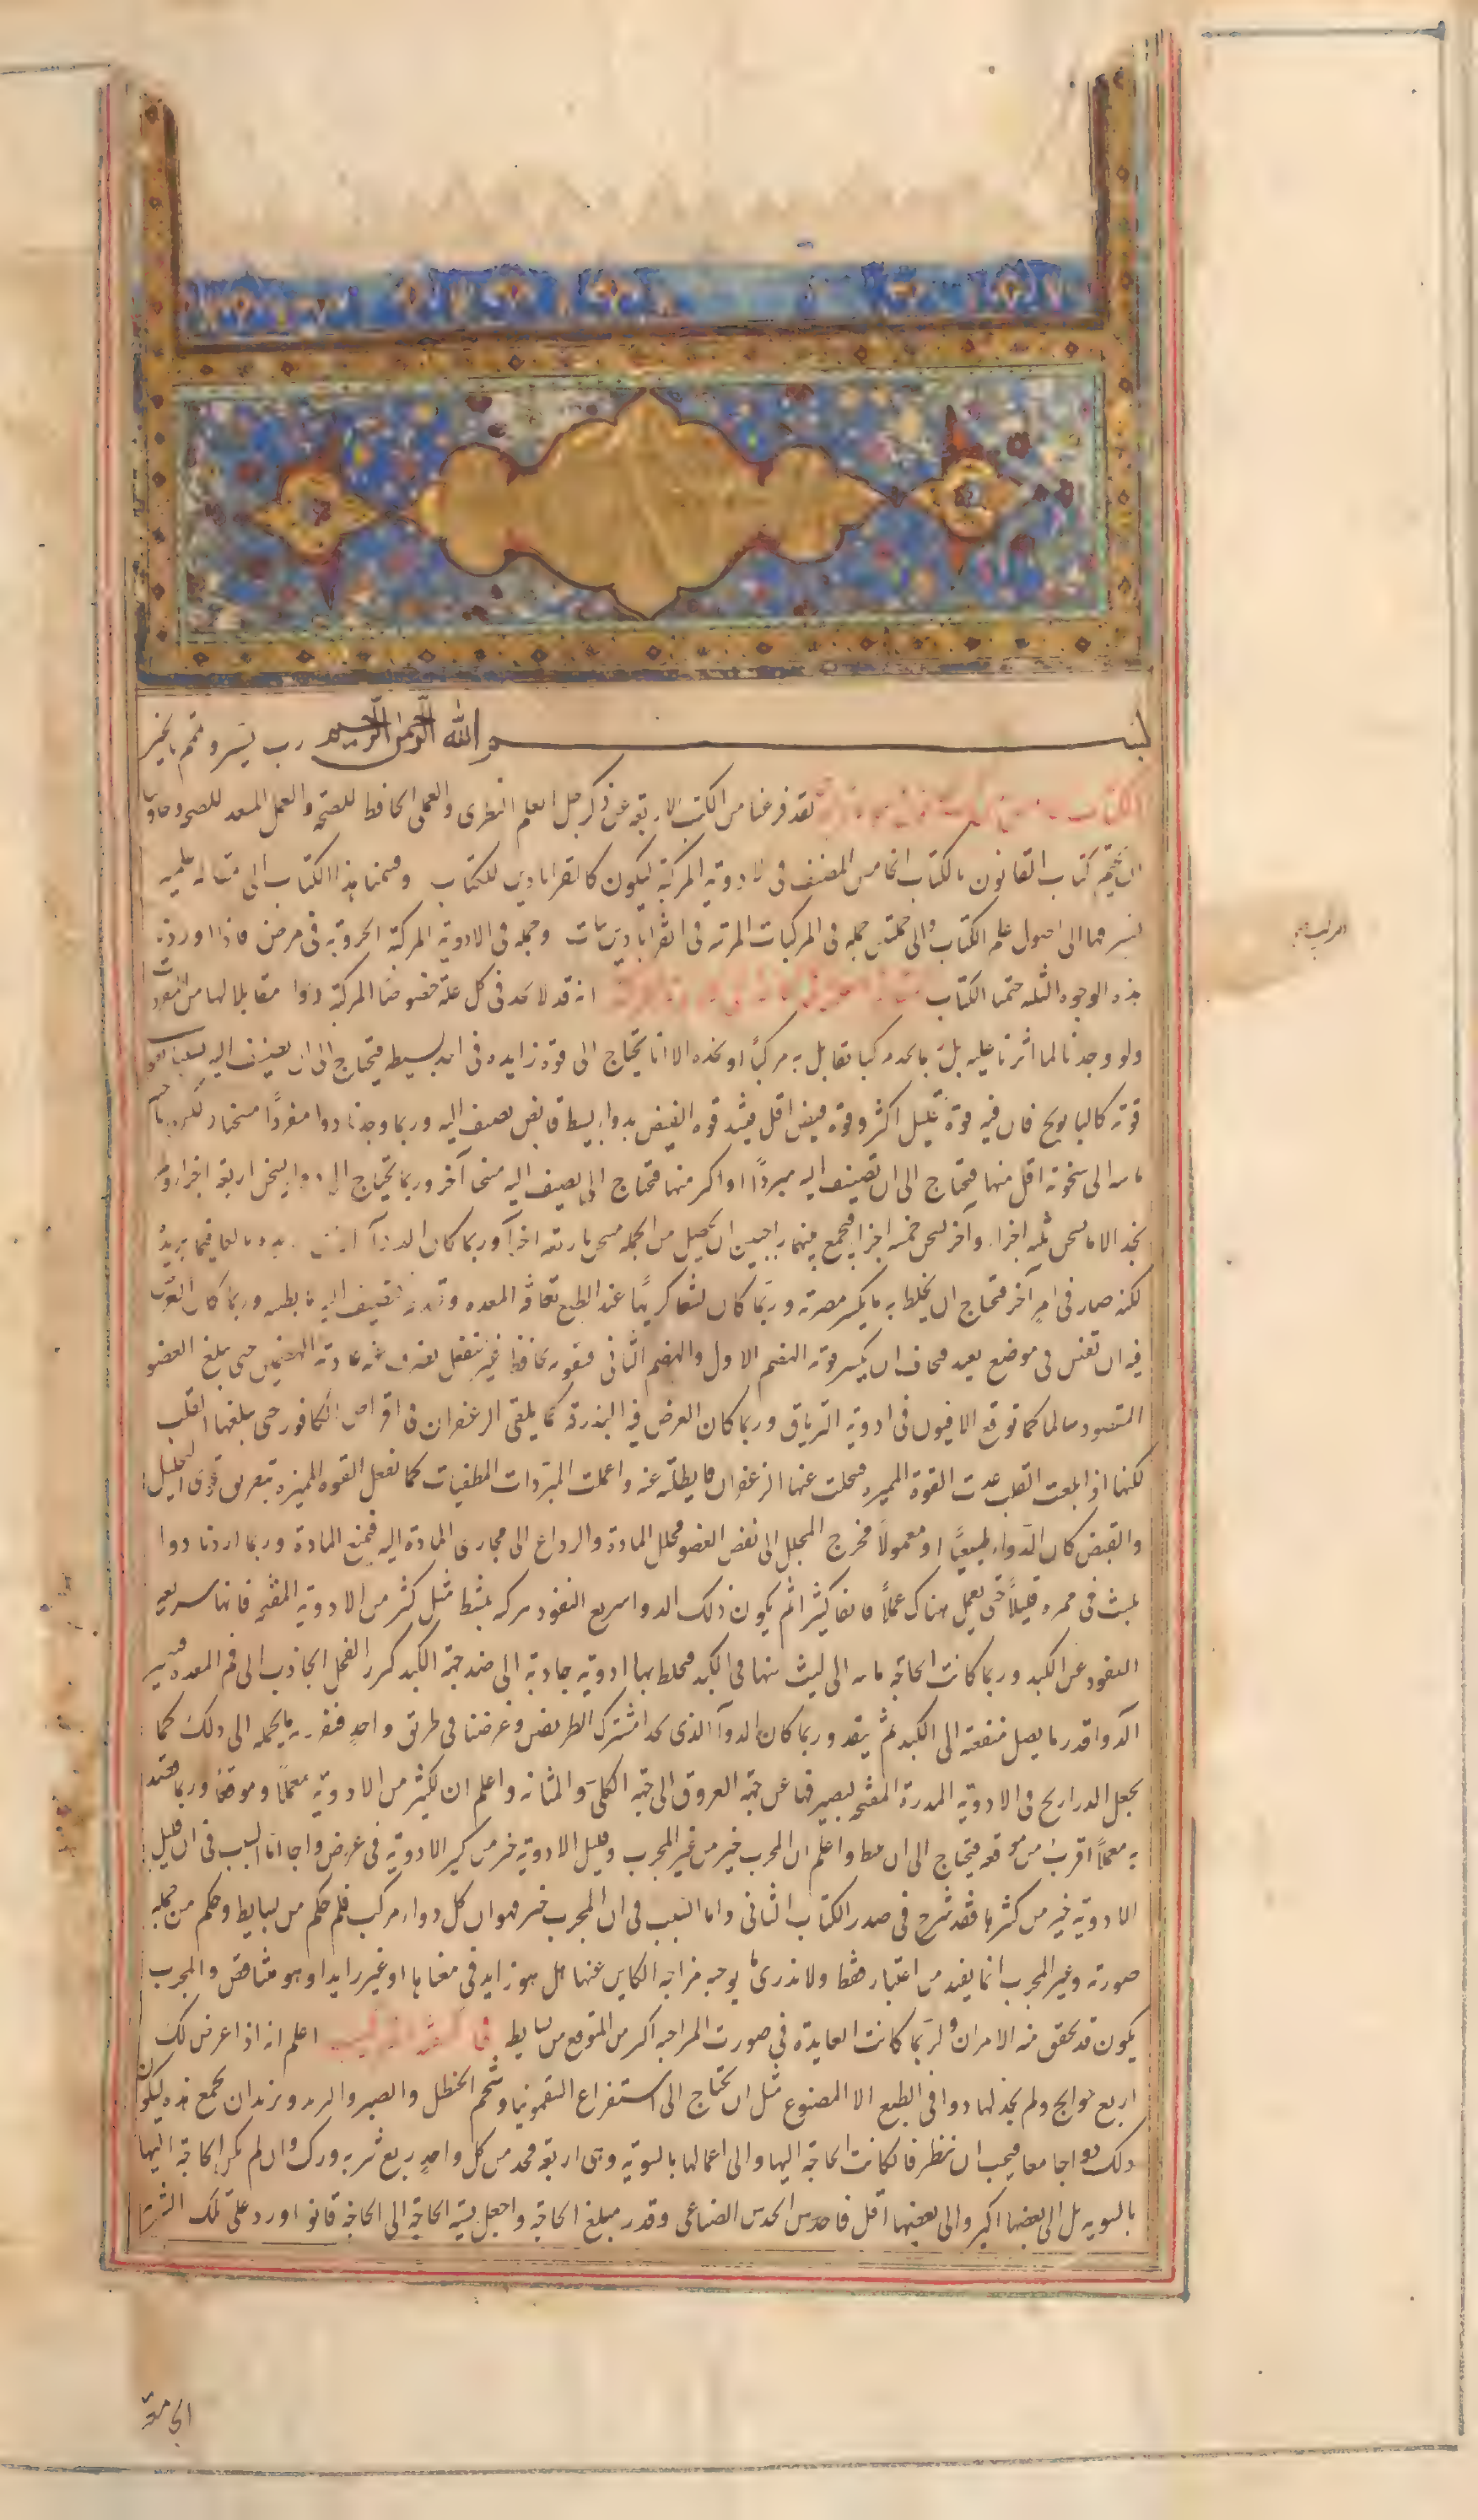 بسم الله الرحمن الرحيم رب يسر وتمم بالخير
الكتاب لقد فرغنا من الكتب الاربعة عن ذكر جل العلم النظرى والعملى الحافظ للصحة والعمل المعد للصحة وحان
ان نختم كتاب القانون بالكتاب الخامس المصنف فى الادوية المركبة ليكون كالقراباذين للكتاب وقسمنا هذا الكتاب الى مقالة علمية
نشير فيها الى اصول علم الكتاب والى جملتين جملة فى المركبات المرتبة فى القراباذينات وجملة فى الادوية المركبة المجربة فى مرض فاذا اوردنا
هذه الوجوه الثلثة ختمنا الكتاب انه قد لا نجد فى كل علة خصوصا المركبة دوا مقابلا لها من المفردات
ولو وجدنا لما اثرنا عليه بل ربما نجد مركبا نقابل به مركبا او نجده الا انا نحتاج الى قوة زايدة فى احد بسيطيه فنحتاج الى ان نضيف اليه بسيطا يقوى
قوته كالبابونج فان فيه قوة تحليل اكثر وقوة قبض اقل فتشد قوة القبض بدواء بسيط قابض نضيف اليه وربما وجدنا دوا مفردا مسخنا ولكن حاجتنا
ماسة الى سخونة اقل منها فنحتاج الى ان نضيف اليه مبردا او اكثر منها فنحتاج ان نضيف اليه مسخنا آخر وربما نحتاج الى دواء يسخن اربعة اجزاء ولم
نجد الا ما يسخن ثلثة اجزاء وآخر يسخن خمسة اجزاء فنجمع بينهما راجين ان يحصل من الجملة مسخن باربعة اجزاء وربما كان الدواء بالغا فيما نريد
لكنه ضار فى امر آخر فنحتاج ان نخلط به ما يكسر مضرته وربما كان بشعا كريها عند الطبع تعافه المعدة وتقذفه فنضيف اليه ما يطيبه وربما كان الغرض
فيه ان يفعل فى موضع بعيد فنخاف ان يكسر قوته الهضم الاول والهضم الثانى فنقرنه بحافظ غير منفعل يصرف عنه عادية الهضمين حتى يبلغ العضو
المقصود سالما كما نوقع الافيون فى ادوية الترياق وربما كان الغرض فيه البذرقة كما يلقى الزعفران فى اقراص الكافور حتى يبلغها القلب
لكنها اذا بلغت القلب عدت القوة المميزة فنحلت عنها الزعفران فابطلته عنه واعملت المبردات المطفيات كما تفعل القوة المميزة بتفريق قوى التحليل
والقبض كان الدواء طبيعيا او معمولا فتخرج المحلل الى نفس العضو فتحلل المادة والرداع الى مجارى المادة اليه فتمنع المادة وربما اردنا دوا
يلبث فى ممره قليلا حتى يعمل هناك عملا فائقا كثيرا ثم يكون ذلك الدوا سريع النفوذ فنركبه بمثبط مثل كثير من الادوية المفتحة فانها سريعة
النفوذ عن الكبد وربما كانت الحاجة ماسة الى لبث منها فى الكبد فنخلط بها ادوية جاذبة الى ضد جهة الكبد كبزر الفجل الجاذب الى فم المعدة فيتحير
الدوا قدر ما يصل منفعته الى الكبد ثم ينفذ وربما كان الدوا الذى نجد مشترك الطريقين وغرضنا فى طريق واحد فنقرن به ما يحمله الى ذلك كما
نجعل الذراريح فى الادوية المدرة المفتحة ليصرفها عن جهة العروق الى جهة الكلى والمثانة واعلم ان لكثير من الادوية معملا وموقفا وربما
به معملا اقرب من موقعه فيحتاج الى ان واعلم ان المجرب خير من غير المجرب وقليل الادوية خير من كثير الادوية فى غرض واحد اما السبب فى ان قليل
الادوية خير من كثيرها فقد شرح فى صدر الكتاب الثانى واما السبب فى ان المجرب خير فهو ان كل دواء مركب فله حكم من بسايطه وحكم من جملة
صورته وغير المجرب انما يفيد من اعتبار بسايطه فقط ولا ندرى ما يوجبه مزاجه الكاين عنها هل هو زايد فى معناها او غير زايد او هو مناقض والمجرب
يكون قد تحقق منه الامران ولربما كانت العايدة فى صورته المزاجية اكثر من المتوقع من بسايطه اعلم انه اذا عرض لك
اربع حوايج ولم تجد لها دوا فى الطبع الا المصنوع مثل ان تحتاج الى استفراغ السقمونيا وشحم الحنظل والصبر والتربد وتريد ان تجمع هذه ليكون
ذلك دوا جامعا فيجب ان تنظر فان كانت الحاجة اليها والى اعمالها بالسوية وهى اربعة فخذ من كل واحد ربع شربة وركب وان لم تكن الحاجة اليها
بالسوية بل الى بعضها اكثر والى بعضها اقل فاحدس الحدس الصناعى وقدر مبلغ الحاجة واجعل نسبة الحاجة الى الحاجة قانونا ورد على تلك الشربة